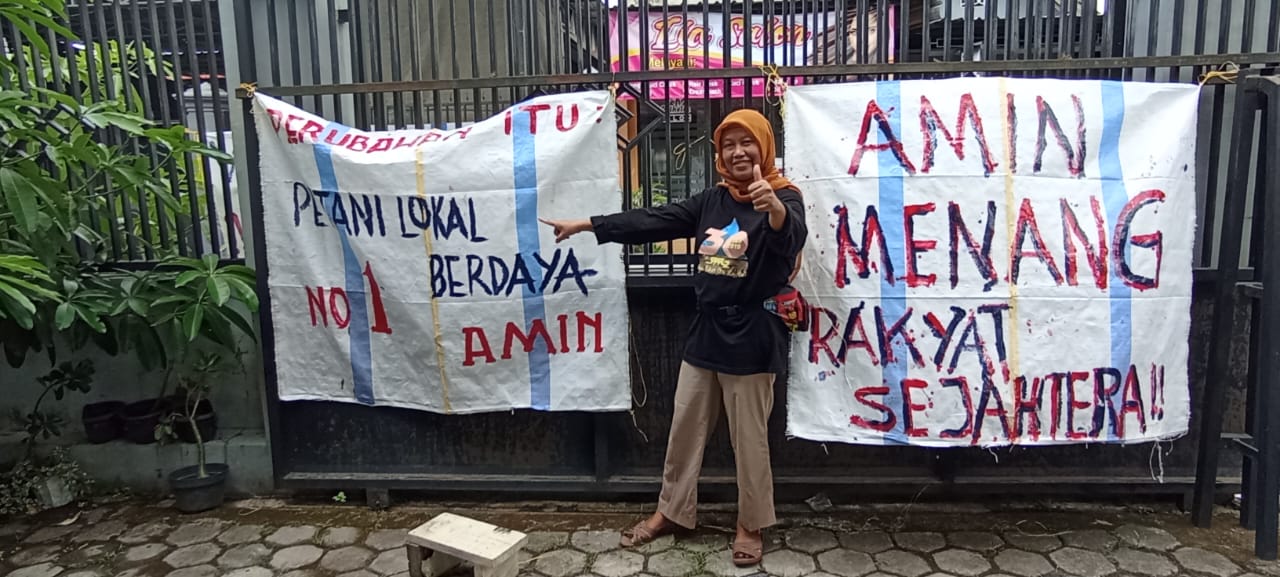 PERUBAHAN ITU:
PETANI LOKAL
BERDAYA
NO 1
AMIN
AMIN
MENANG
RAKYAT
SEJAHTERA!!
Lia Salon
Melayani:
36